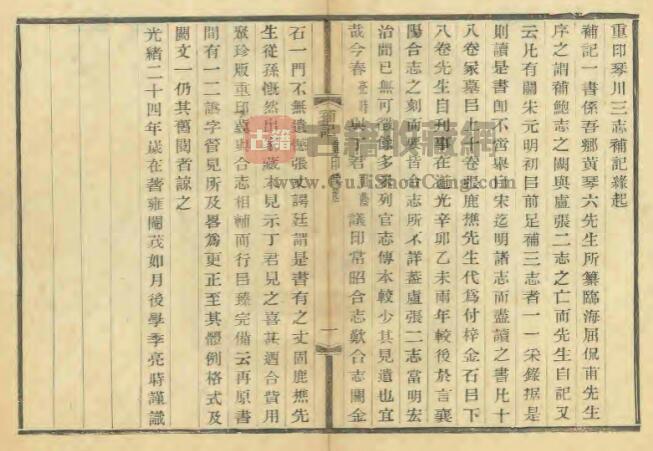 重印琴川三志補記緣起
補記一書係吾鄉黃琴六先生所纂臨海屈侃甫先生
序之謂補鮑志之闕與盧張二志之亡而先生自記又
云凡有關宋元明初目前足補三志者一一采錄据是
則讀是書卽不啻舉曰宋迄明諸志而盡讀之書凡十
八卷家墓曰上十卷張鹿樵先生代爲付梓金石曰下
八卷先生自刊事在道光辛卯乙未兩年較後於言襄
陽合志之刻而要皆合志所不詳葢盧張二志當明宏
治間已無可徵 多 列官志傳本較少其見遺也宜
哉今春 與丁君 議印常昭合志歎合志闕金
石一門不無遺憾張丈諤廷謂是書有之丈固鹿樵先
生從孫慨然出 藏本見示丁君見之喜甚迺合貲用
聚珍版重印 與合志相輔而行曰臻完備云再原書
間有一二譌字管見所及畧爲更正至其體例格式及
闕文一仍其舊閱者諒之
光緒二十四年歲在著雍閹茂如月後學季亮時謹識
補記
一
古籍
古籍收藏網
www.GuJiShouCang.com